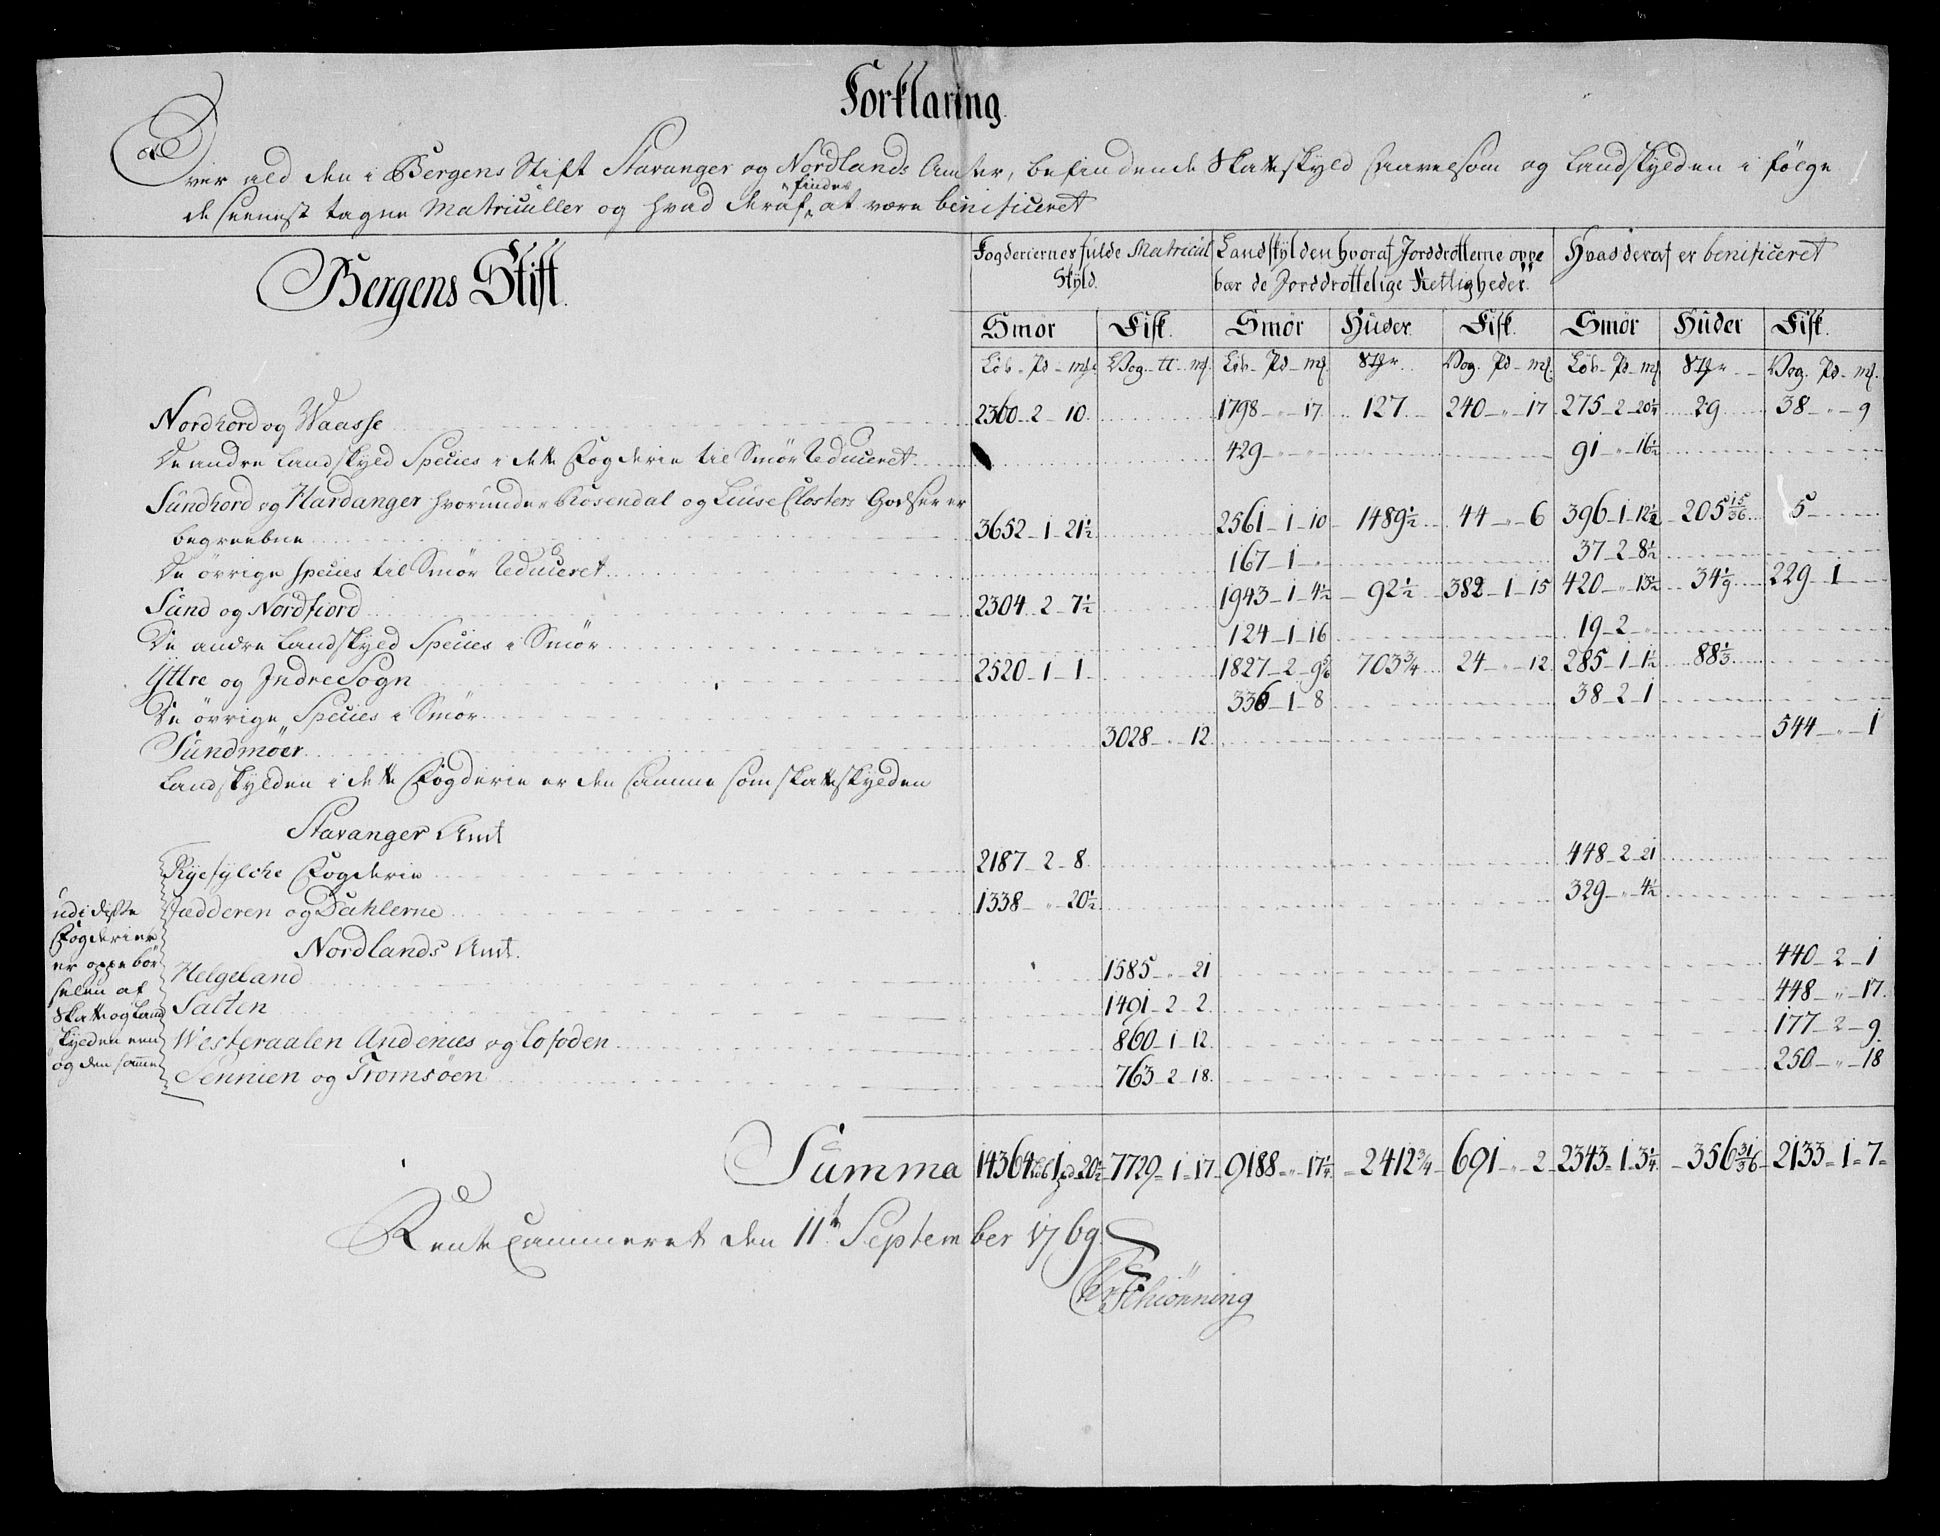 Forklaring
Over ald den i Bergens Stift Stavanger og Nordlands Amter, befindende Skatteskyld saavelsom og Landskylden i følge
findes
de seenest tagne Matriculler og hvad deraf at være benificeret
Bergens Stift.
Fogderiernes fulde Matricul Skyld.
Landskylden hvoraf Jorddrotterne oppebær de Jorddrottelige Rettigheder.
Hvad deraf er benificeret
Smør Fisk. Smør Huder. Fisk. Smør Huder Fisk.
Løb - Pd - mk. Vog. tt. mk. Løb - Pd - mk. Vog. Pd - mk. Løb - Pd - mk. Vog. Pd - mk.
Nordhord og Waasse 2360 - 2 - 10. 1798 - " - 17. 127. 240 - " - 17 275 - 2 - 20¼ 29 38 - " - 9
De andre Landskyld Species i dette Fogderie til Smør Reduceret 429 - " - " 91 - " - 16½
Sundhord og Hardanger hvorunder Rosendal og Liuse Closters Godser er
begreebne 3652 - 1 - 21½ 2561 - 1 - 10 1489½ 44 - " - 6 396 - 1 - 12½ 205 15/36 5
De övrige Species til Smør Reduceret 167 - 1 - " 37 - 2 - 8½
Sund og Nordfiord 2304 - 2 - 7½ 1943 - 1 - 4½ 92½ 382 - 1 - 15 420 - " - 13½ 34 1/9 229 - 1
De andre Landskyld Species i Smør 124 - 1 - 16 19 - 2 - "
Yttre og Indre Sogn 2520 - 1 - 1 1827 - 2 - 9⅚ 703¾ 24 - " - 12 285 - 1 - 1½ 88⅓
De övrige Species i Smør 336 - 1 - 8 38 - 2 - 1
Sundmöer 3028 - " - 12. 544 - " - 1
Landskylden i dette Fogderie er den samme som skatteskylden
Stavanger Amt
Ryefylche Fogderie 2187 - 2 - 8. 448 - 2 - 21
Jædderen og Dahlerne 1338 - " - 20½ 329 - " - 4½
Nordlands Amt.
Helgeland 1585 - " - 21 440 - 2 - 1
Salten 1491 - 2 - 2. 448 - " - 17.
Westeraalen Andenies og Lofoden 860 - 1 - 12. 177 - 2 - 9.
Sennien og Tromsöen 763 - 2 - 18. 250 - " - 18
udi disse
Fogderier
er oppebör
selen af
Skatte og Land
skylden een
og den samme
Summa 14364 Løb 1 pd - 20½ 7729 - 1 - 17. 9188 - " - 17¼ 2412¾ 691 - " - 2 2343 - 1 - 3¼ 356 31/36 2133 - 1 - 7
Rente Cammeret den 11te September 1769.
Schiønning